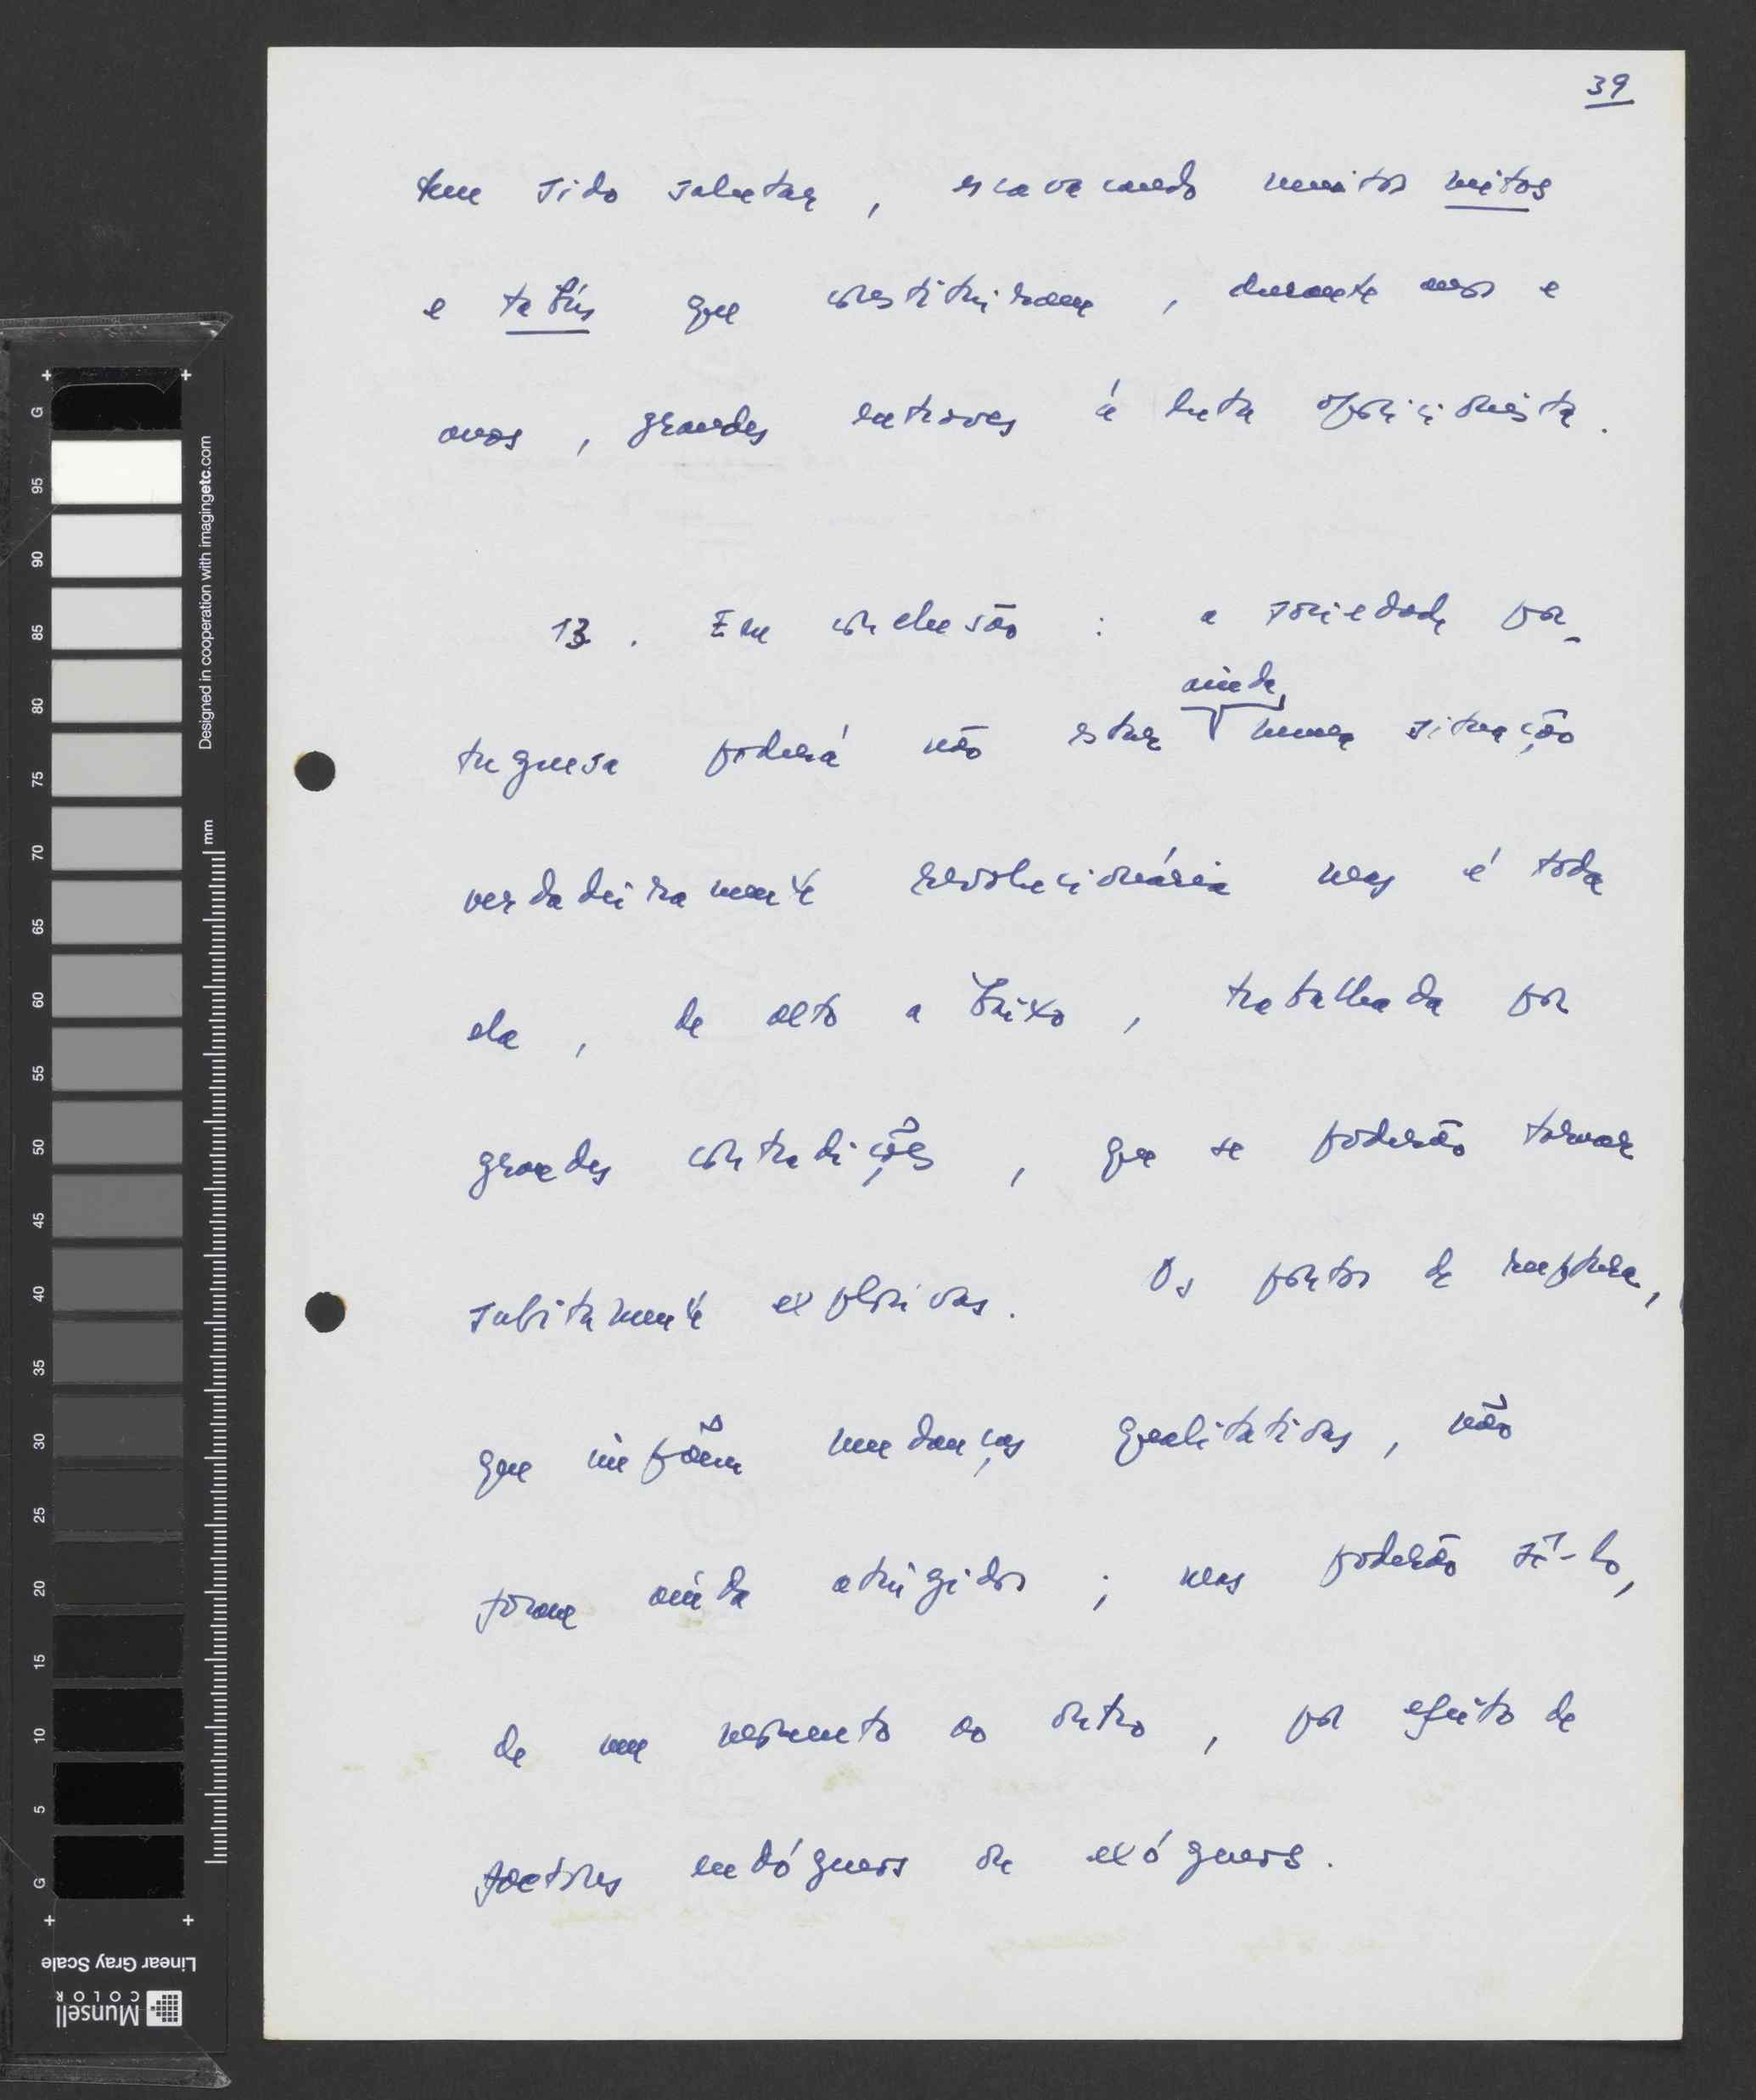 39
tem sido salutar, escavacando muitos mitos
e tabús que constituiram, durante anos e
anos, grandes entraves à luta oposicionista.
13. Em conclusão: a sociedade por-
ainda,
tuguesa poderá não estar numa situação
verdadeiramente revolucionária mas é toda
ela, de alto a baixo, trabalhada por
grandes contradições, que se poderão tornar
subitamente explosivas. Os pontos de ruptura,
que impõem mudanças qualitativas, não
foram ainda atingidos; mas poderão sê-lo,
de um momento ao outro, por efeito de
factores endógenos ou exógenos.
G
95
90
85
80
75
70
65
60
55
50
45
40
35
30
25
20
15
10
5
G
Designed in cooperation with imagingetc.com
mm
Linear Gray Scale
Munsell
COLOR